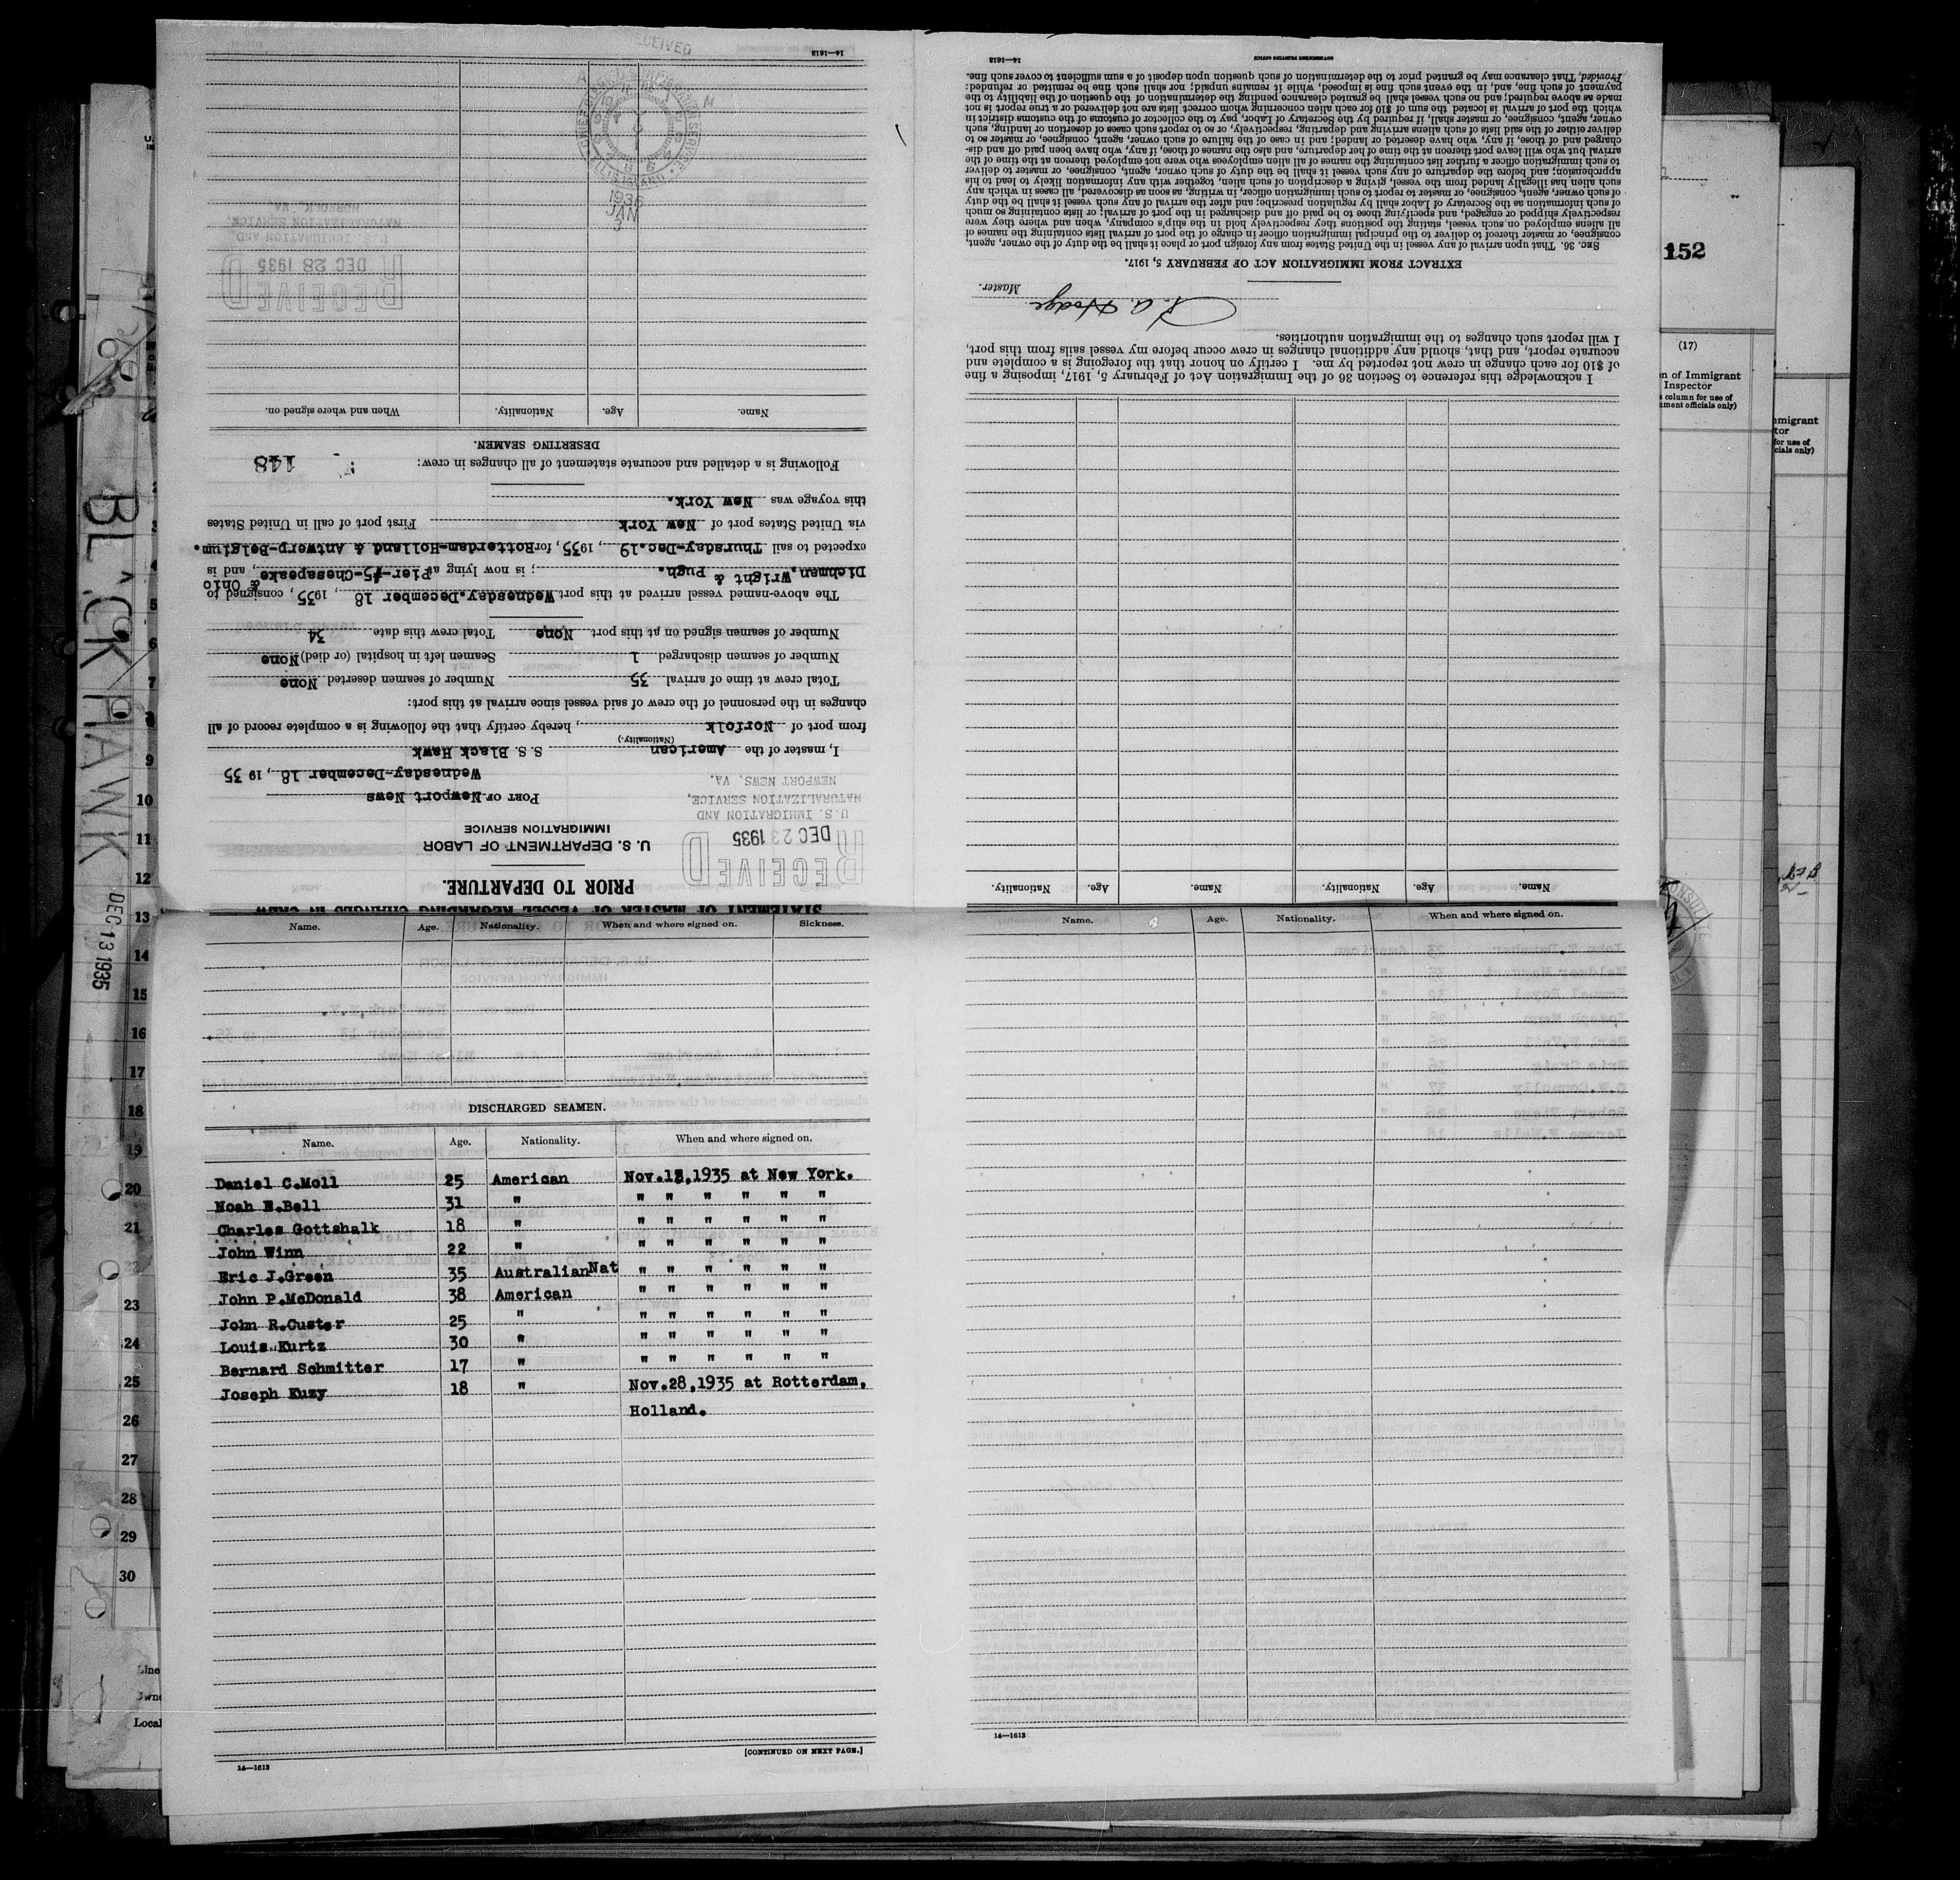 STATEMENT OF MASTER OF VESSEL REGARDING CHANGES IN CREW
PRIOR TO DEPARTURE.
U. S. DEPARTMENT OF LABOR
IMMIGRATION SERVICE
RECEIVED
DEC 23 1935
U.S. IMMIGRATION AND
NATURALIZATION SERVICE,
NEWPORT NEWS, VA.
PORT OF Newport News
Wednesday-December 18, 1935
I, master of the American S. S. Black Hawk
(Nationality.)
from port of Norfolk, hereby certify that the following is a complete record of all
changes in the personnel of the crew of said vessel since arrival at this port:
Total crew at time of arrival 35 Number of seamen deserted None
Number of seamen discharged 1 Seamen left in hospital (or died) None
Number of seamen signed on at this port None Total crew this date 34
The above-named vessel arrived at this port Wednesday.December 18, 1935, consigned to
Dichman, Wright & Pugh.; is now lying at Pier-#5-Chesapeake & Ohio, and is
expected to sail Thursday-Dec.19, 1935, for Rotterdam-Holland & Antwerp-Belgium.
via United States port of New York First port of call in United States
this voyage was New York.
Following is a detailed and accurate statement of all changes in crew: 148
DESERTING SEAMEN.
Name. Age. Nationality. When and where signed on.
RECEIVED
DEC 28 1935
IMMIGRATION AND
NATURALIZATION SERVICE
NORFOLK, VA.
RECEIVED
ELLIS ISLAND
1936
JAN
14—1613
Name. Age. Nationality. Name. Age. Nationality.
I acknowledge this reference to Section 36 of the Immigration Act of February 5, 1917, imposing a fine
of $10 for each change in crew not reported by me. I certify on honor that the foregoing is a complete and
accurate report, and that, should any additional changes in crew occur before my vessel sails from this port,
I will report such changes to the immigration authorities.
A. Hodge
Master.
EXTRACT FROM IMMIGRATION ACT OF FEBRUARY 5, 1917.
SEC. 36. That upon arrival of any vessel in the United States from any foreign port or place it shall be the duty of the owner, agent,
consignee, or master thereof to deliver to the principal immigration officer in charge of the port of arrival lists containing the names of
all aliens employed on such vessel, stating the positions they respectively hold in the ship's company, when and where they were
respectively shipped or engaged, and specifying those to be paid off and discharged in the port of arrival; or lists containing so much
of such information as the Secretary of Labor shall by regulation prescribe; and after the arrival of any such vessel it shall be the duty
of such owner, agent, consignee, or master to report to such immigration officer, in writing, as soon as discovered, all cases in which any
such alien has illegally landed from the vessel, giving a description of such alien, together with any information likely to lead to his
apprehension; and before the departure of any such vessel it shall be the duty of such owner, agent, consignee, or master to deliver
to such immigration officer a further list containing the names of all alien employees who were not employed thereon at the time of the
arrival but who will leave port thereon at the time of her departure, and also the names of those, if any, who have been paid off and dis-
charged and of those, if any, who have deserted or landed; and in case of the failure of such owner, agent, consignee, or master so to
deliver either of the said lists of such aliens arriving and departing, respectively, or so to report such cases of desertion or landing, such
owner, agent, consignee, or master shall, if required by the Secretary of Labor, pay to the collector of customs of the customs district in
which the port of arrival is located the sum of $10 for each alien concerning whom correct lists are not delivered or a true report is not
made as above required; and no such vessel shall be granted clearance pending the determination of the question of the liability to the
payment of such fine, and, in the event such fine is imposed, while it remains unpaid; nor shall such fine be remitted or refunded:
Provided, That clearance may be granted prior to the determination of such question upon deposit of a sum sufficient to cover such fine.
14—1613
GOVERNMENT PRINTING OFFICE
Name. Age. Nationality. When and where signed on. Sickness.
DISCHARGED SEAMEN.
Name. Age. Nationality. When and where signed on.
Daniel C.Moll 25 American Nov.13,1935 at New York.
Noah E.Bell 31 " " " " " " "
Charles Gottshalk 18 " " " " " " "
John Winn 22 " " " " " " "
Eric J.Green 35 Australian Nat " " " " " "
John P.McDonald 38 American " " " " " "
John R.Custer 25 " " " " " " "
Louis Kurtz 30 " " " " " " "
Bernard Schmitter 17 " " " " " " "
Joseph Kuzy 18 " Nov.28,1935 at Rotterdam,
Holland.
[CONTINUED ON NEXT PAGE.]
14—1613
Name. Age. Nationality. When and where signed on.
14—1613
BLACK HAWK
DEC 13 1935
2
3
4
5
6
7
8
9
10
11
12
13
14
15
16
17
18
19
20
21
22
23
24
25
26
27
28
29
30
Line
Owne
Local
152
(17)
n of Immigrant
Inspector
column for use of
nment officials only)
mmigrant
tor
for use of
cials only)